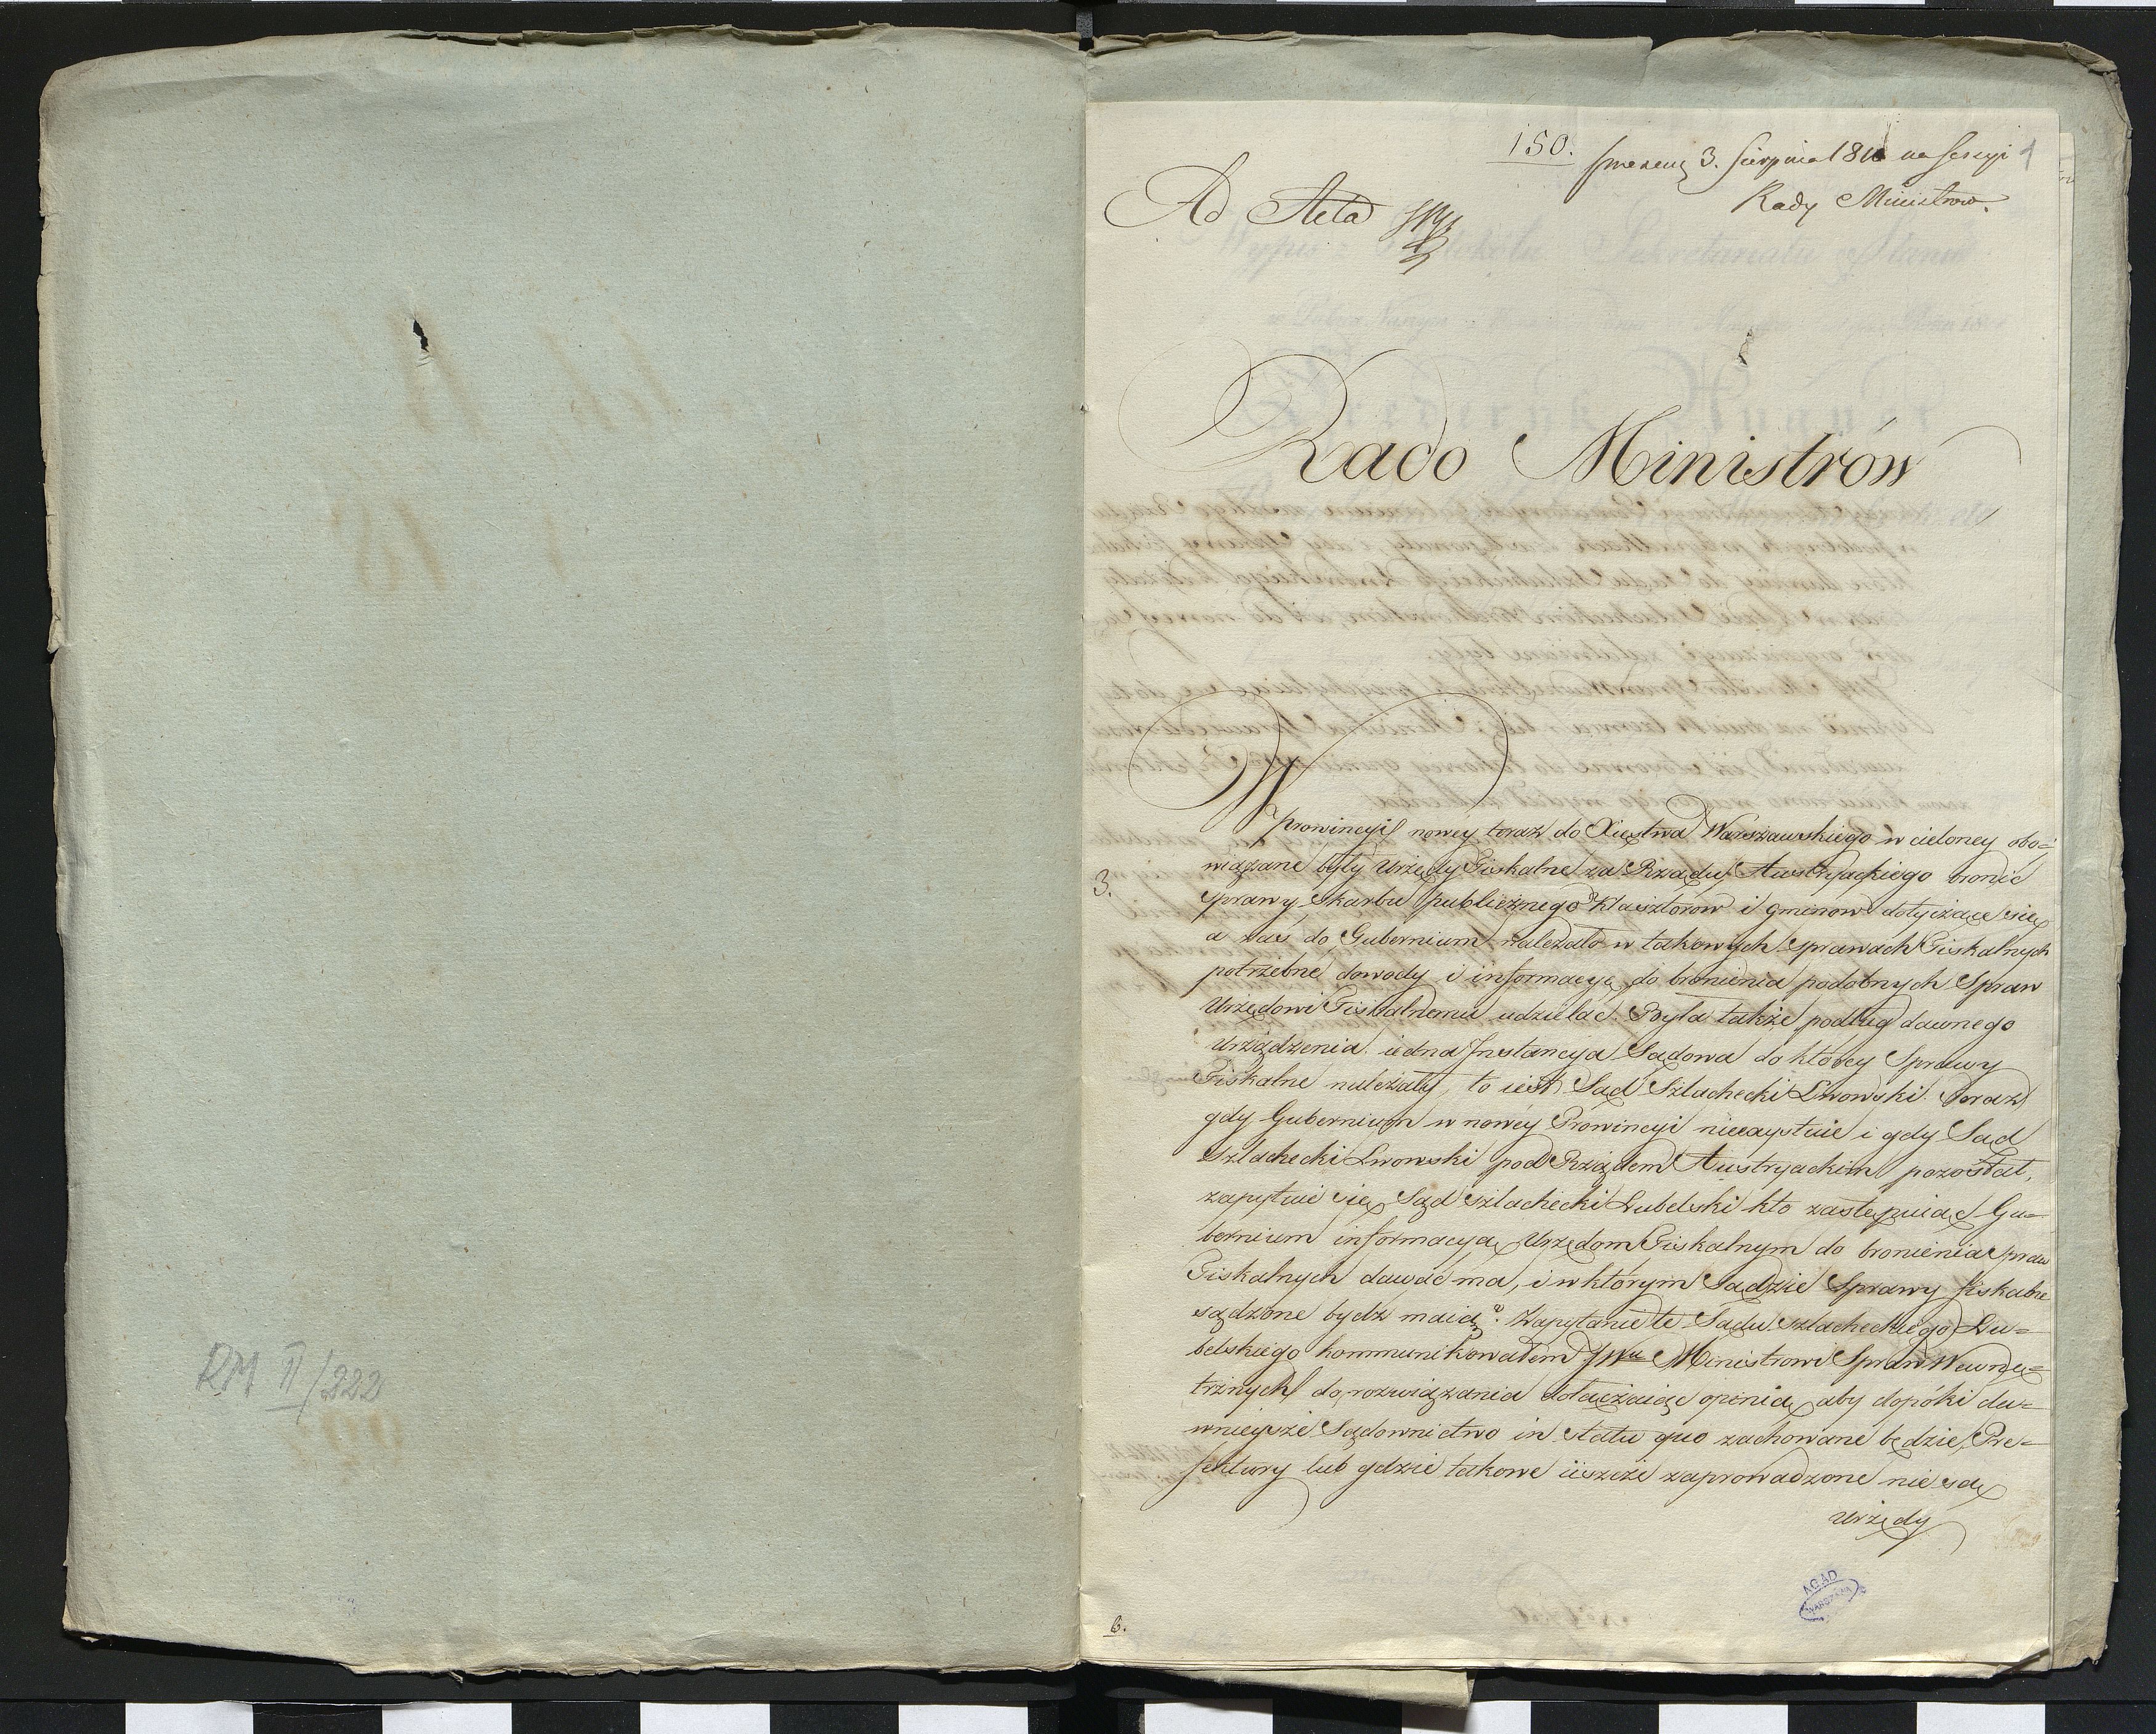 RM II/222
150.
prezen: 3. Sierpnia 1810 na sessyi 1
Rady Ministrow.
Ad Acta
Rado Ministrów
W prowincyi nowey teraz do Xięstwa Warszawskiego wcieloney obo=
3.
wiązane były Urzędy Fiskalne za Rządu Austryackiego bronić
sprawy skarbu publicznego Klasztorow i gminow dotyiżące się
a zaś do Gubernium należało w takowych sprawach Fiskalnych
potrzebne dowody i informacyę do bronienia podobnych Spraw
Urzędowi Fiskalnemu udzielać. Była także podług dawnego
urządzenia iedna Instancyja Sądowa do ktorey Sprawy
Fiskalne należały, to iest Sąd Szlachecki Lwowski. Teraz
gdy Gubernium w nowey Prowincyi nieexystuie i gdy Sąd
Szlachecki Lwowski pod Rządem Austryackim pozostał,
zapytuie się Sąd szlachecki Lubelski kto zastępuiąc Gu=
bernium informacyą Urzędom Fiskalnym do bronienia Spraw
Fiskalnych dawać ma, i w którym Sądzie Sprawy fiskalne
sądzone bydź maią? Zapytanie te Sądu szlacheckiego Lu=
belskiego kommunikowałem JWu Ministrowi Spraw Wewnę=
trznych do rozwiązania dołączaiąc opinią, aby dopóki da=
wnieysze Sądownictwo in statu quo zachowane będzie, Pre=
fektury lub gdzie takowe ieszcze zaprowadzone nie są
Urzędy
AGAD
WARSZAWA
6.